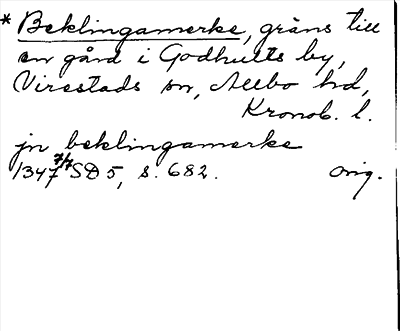 * Beklingamerke, gräns till
en gård i Godhults by,
Virestads sn, Allbo hd,
Kronob. l.
jn beklingamerke
1347 7/7 SD 5, s. 682. Orig.